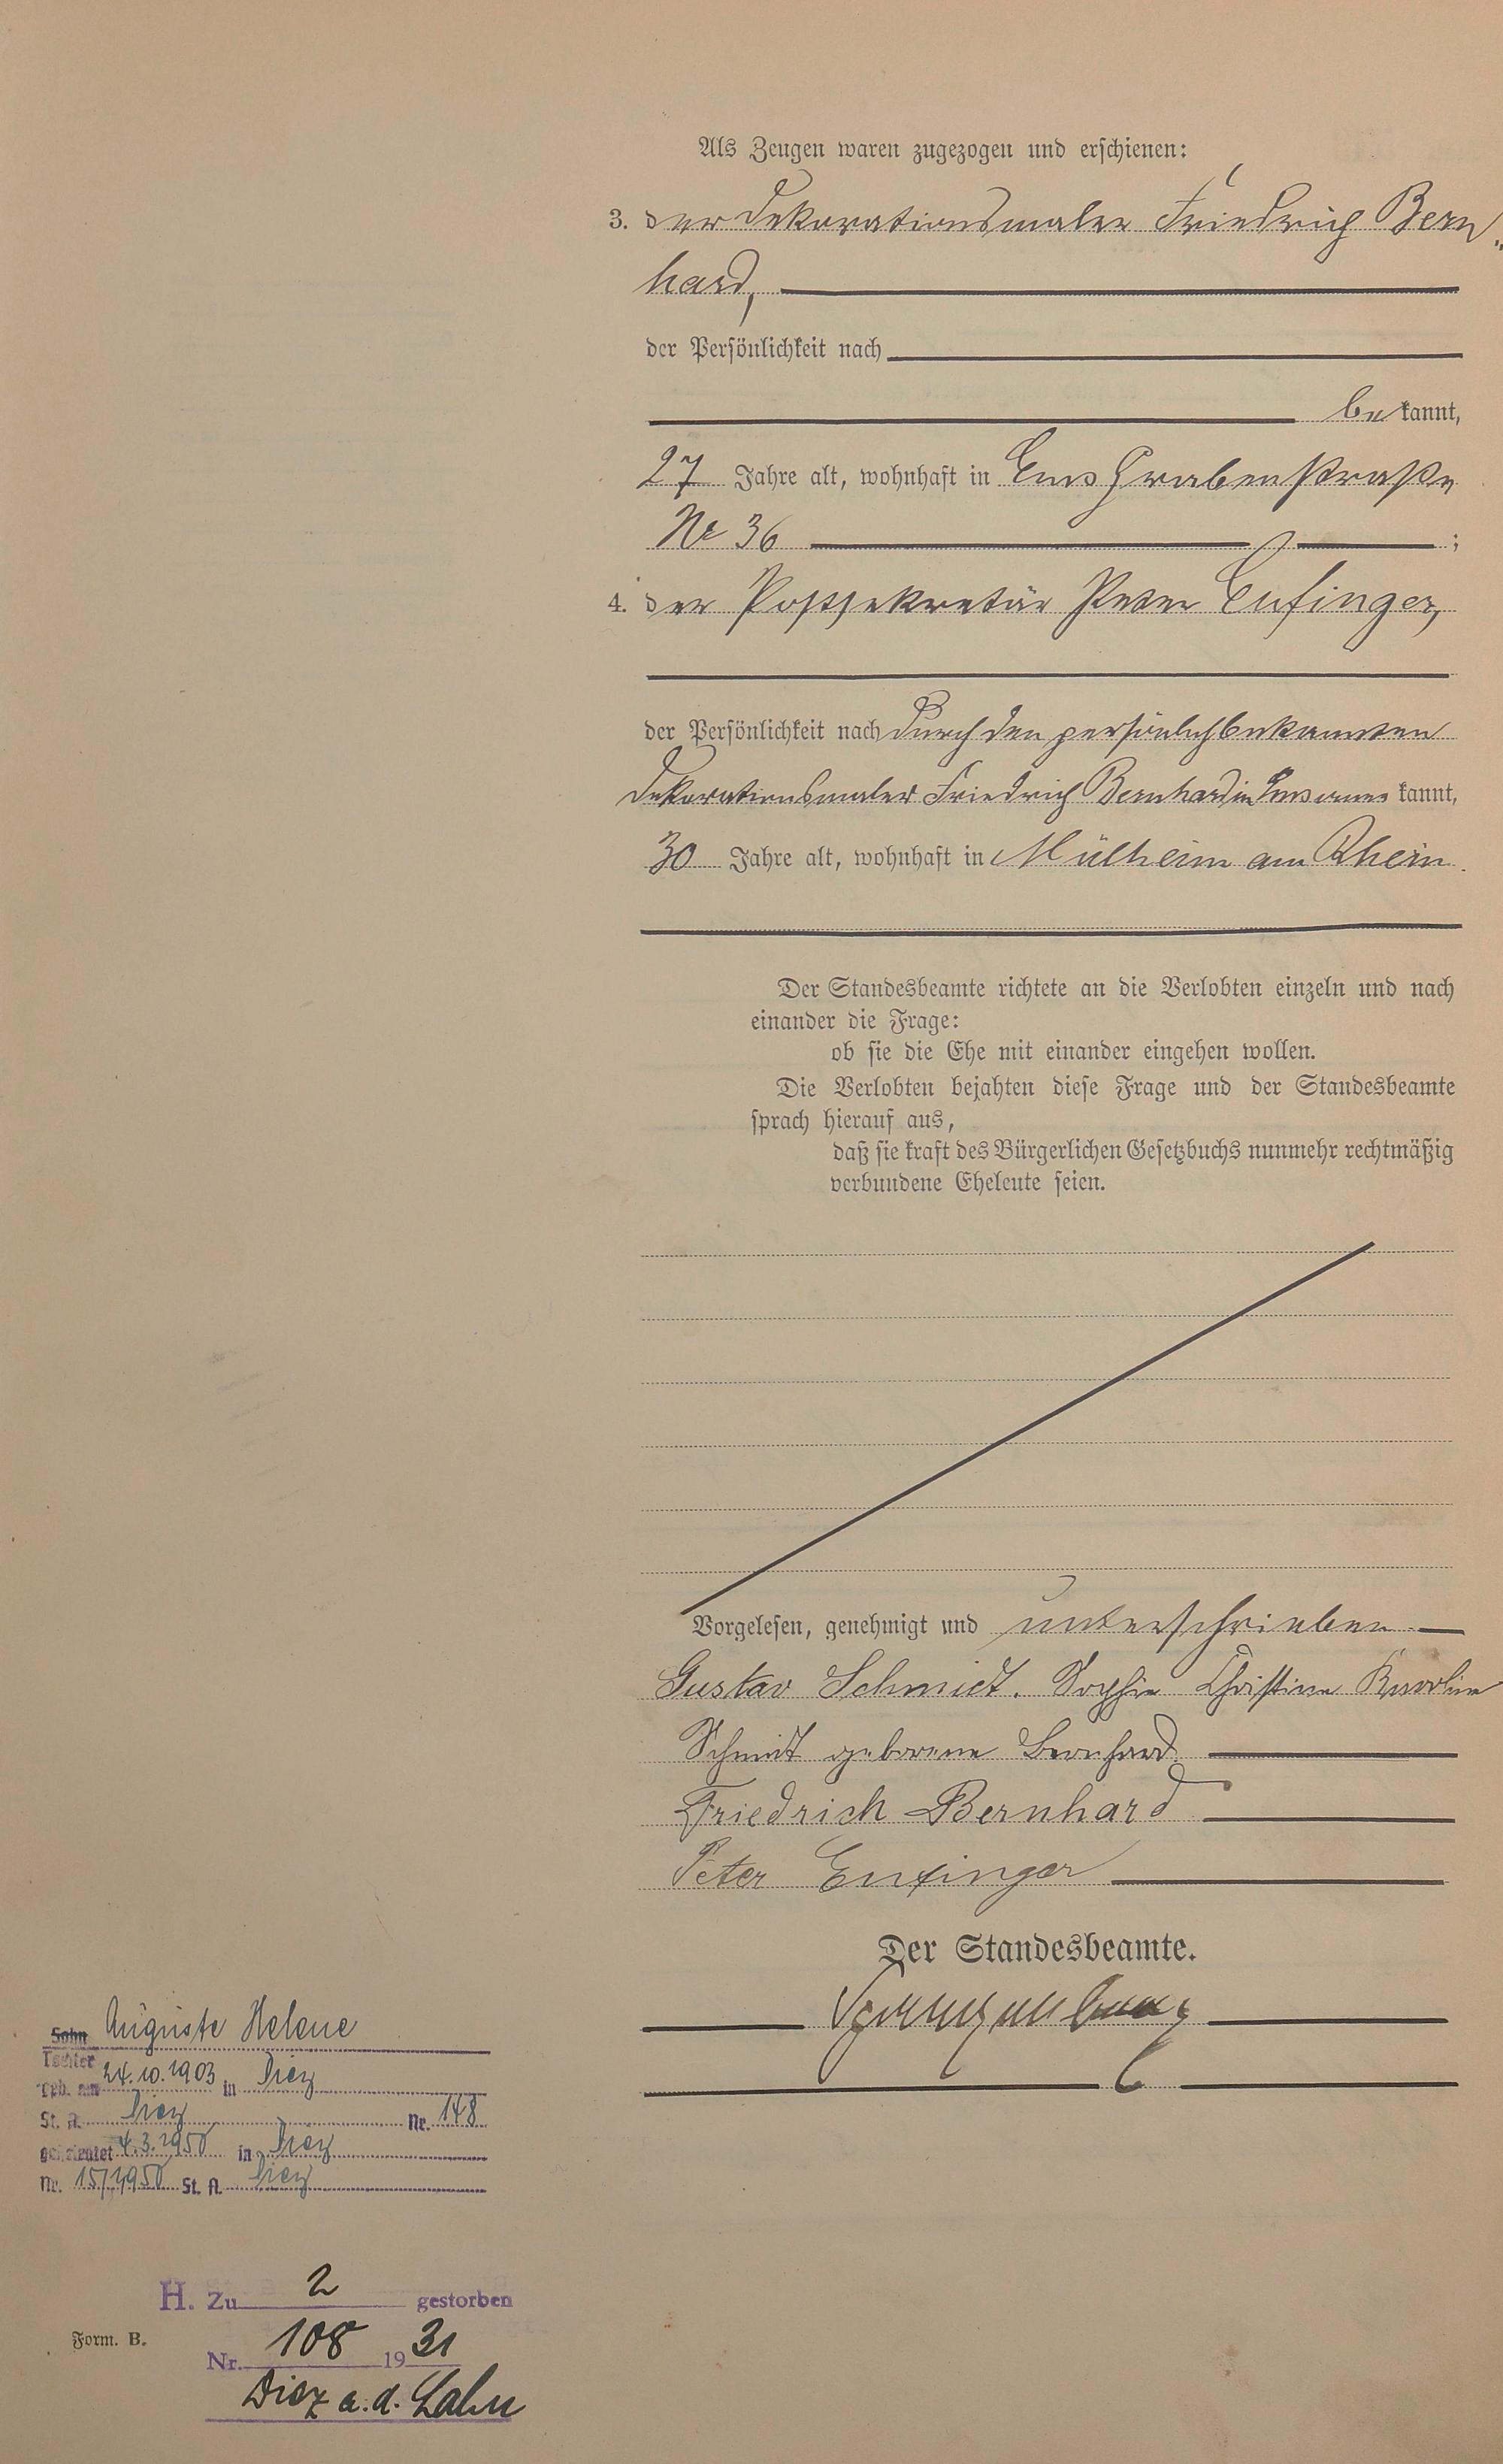 Als Zeugen waren zugezogen und erschienen:
3. der Dekorationsmaler Friedrich Bern„
hard,
der Persönlichkeit nach
be kannt,
27 Jahre alt, wohnhaft in Ems Grabenstraße
Nr 36 ;
4. der Postsekretär Peter Eufinger,
der Persönlichkeit nach durch den persönlich bekannten
Dekorationsmaler Friedrich Bernhard in Ems aner kannt,
30 Jahre alt, wohnhaft in Mülheim am Rhein.
Der Standesbeamte richtete an die Verlobten einzeln und nach
einander die Frage:
ob sie die Ehe mit einander eingehen wollen.
Die Verlobten bejahten diese Frage und der Standesbeamte
sprach hierauf aus,
daß sie kraft des Bürgerlichen Gesetzbuchs nunmehr rechtmäßig
verbundene Eheleute seien.
Vorgelesen, genehmigt und unterschrieben.
Gustav Schmidt. Sophie Christine Karoline
Schmidt geborene Bernhard.
Friedrich Bernhard
Peter Eufinger
Der Standesbeamte.
Sohn Auguste Helene
Tochter
geb. am 24.10.1903 in Diez
St. A. Diez Nr. 148
geheiratet 4.3.1950 in Diez
Nr. 15/1950 St. A. Diez
H. Zu 2 gestorben
Form. B.
Nr. 108 1931
Diez a.d. Lahn